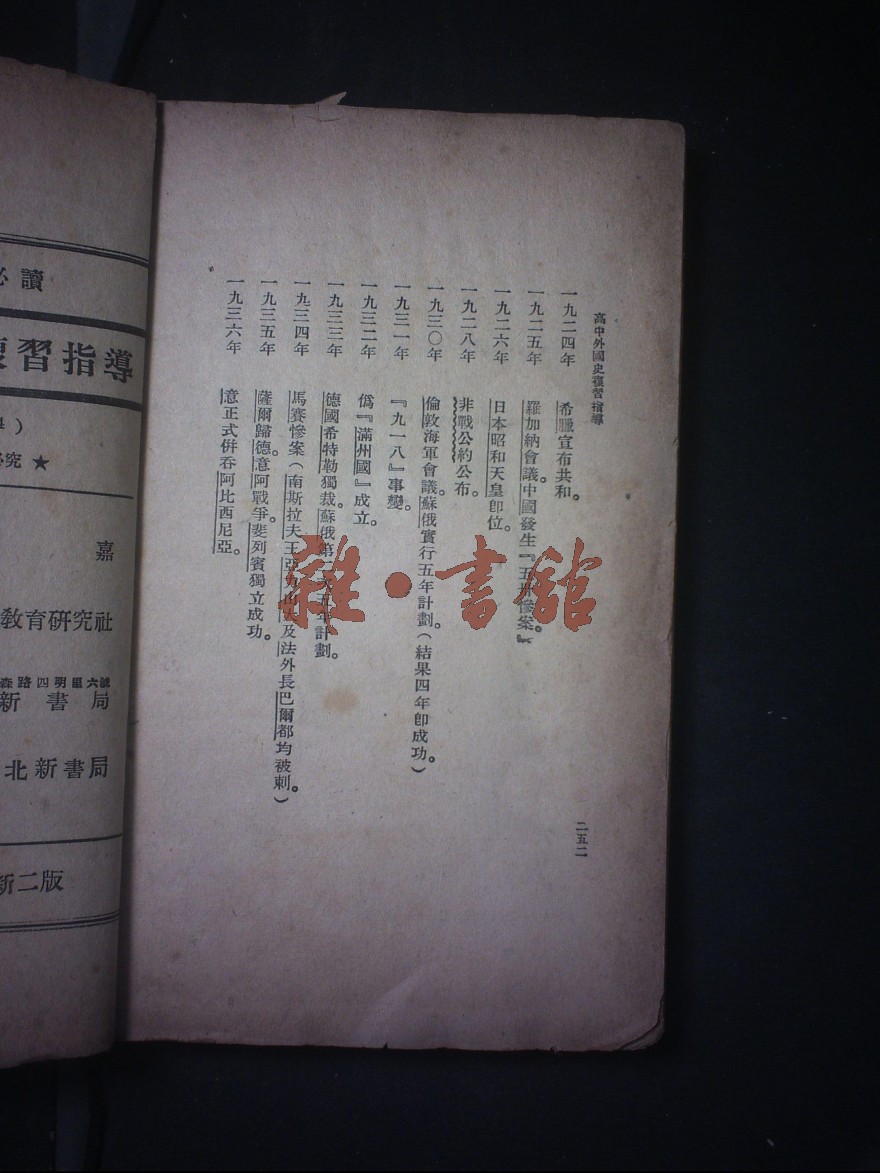 高中外國史複習指導
一九二四年 希臘宣布共和。
一九二五年 羅加納會議。中國發生『五卅慘案。』
一九二六年 日本昭和天皇卽位。
一九二八年 非戰公約公布。
一九三〇年 倫敦海軍會議。蘇俄實行五年計劃。(結果四年卽成功。)
一九三一年 『九一八』事變。
一九三二年 僞『滿州國』成立。
一九三三年 德國希特勒獨裁。蘇俄第二次五年計劃。
一九三四年 馬賽慘案(南斯拉夫王亞力山大及法外長巴爾都均被刺。)
一九三五年 薩爾歸德。意阿戰爭。斐列賓獨立成功。
一九三六年 意正式併吞阿比西尼亞。
二五二
必讀
習指導
究★
嘉
教育研究社
森路四明里六號
新書局
北新書局
新二版
雜·書館